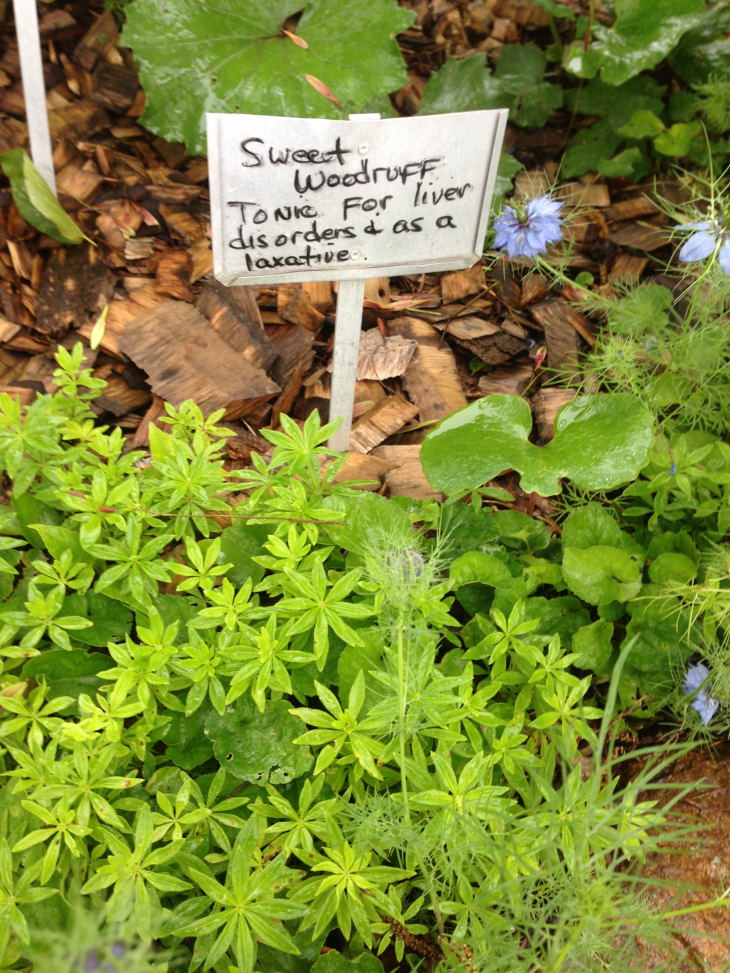 Sweet
Woodruff
Tonic For liver
disorders & as a
laxative.